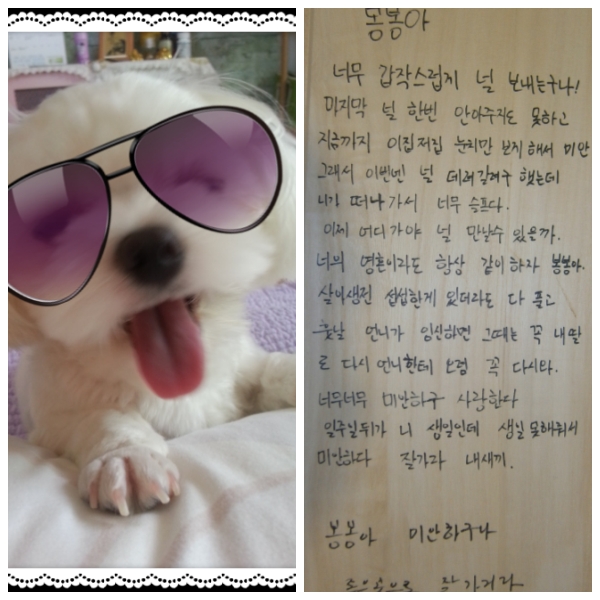 몽봉아
너무 갑작스럽게 널 보내는구나!
마지막 널 한번 안아주지도 못하고
지금까지 이집저집 눈치만 보게 해서 미안
그래서 이번엔 널 데려갈려구 했는데
니가 떠나가서 너무 슬프다.
이제 어디가야 널 만날수 있을까.
너의 영혼이라도 항상 같이하자 봉봉아.
살아생전 섭섭한게 있더라도 다 풀고
훗날 언니가 임신하면 그때는 꼭 내딸
로 다시 언니한테 꼭 다시와.
너무너무 미안하구 사랑한다
일주일뒤가 니 생일인데 생일 못해줘서
미안하다 잘가라 내새끼.
봉봉아 미안하구나
잘가거라